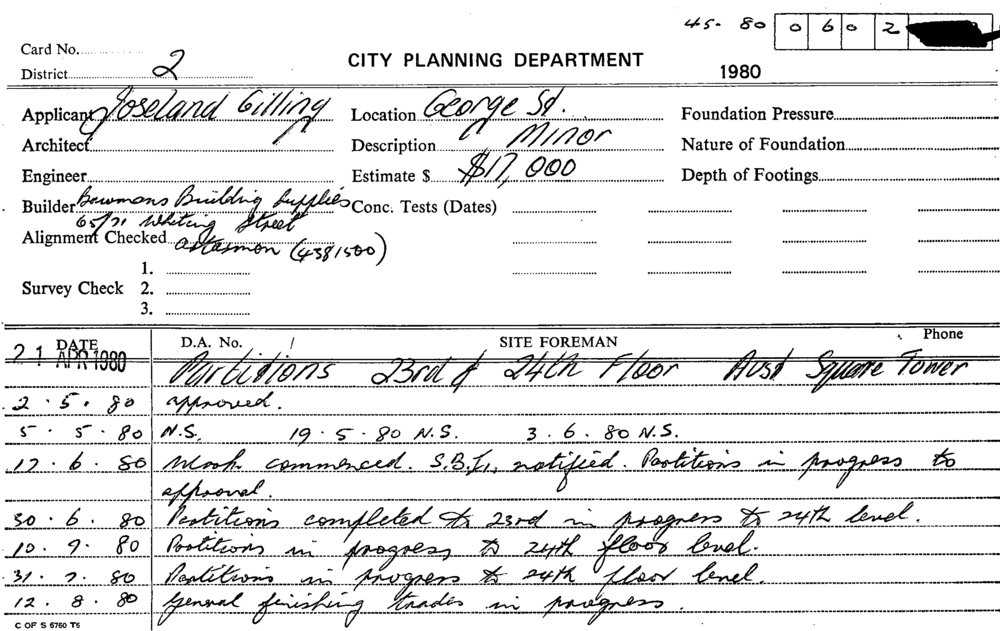 45 - 80 0602
Card No.
District 2
CITY PLANNING DEPARTMENT
1980
Applicant Joseland Gilling Location George St. Foundation Pressure
Architect Description Minor Nature of Foundation
Engineer Estimate $ $17,000 Depth of Footings
Builder Bowmans Building Supplies Conc. Tests (Dates)
65/71 Whiting Street
Alignment Checked Artarmon (4381500)
1.
Survey Check 2.
3.
DATE D.A. No. / SITE FOREMAN Phone
21 APR 1980 Partitions 23rd & 24th Floor Aust Square Tower
2 . 5 . 80 approved.
5 . 5 . 80 N.S. 19 . 5 . 80 N.S. 3 . 6 . 80 N.S.
17 . 6 . 80 Work commenced. S.B.I. notified. Partitions in progress to
approval.
30 . 6 . 80 Partitions completed to 23rd in progress to 24th level.
10 . 7 . 80 Partitions in progress to 24th floor level.
31 . 7 . 80 Partitions in progress to 24th floor level.
12 . 8 . 80 General finishing trades in progress.
C OF S 6760 T6